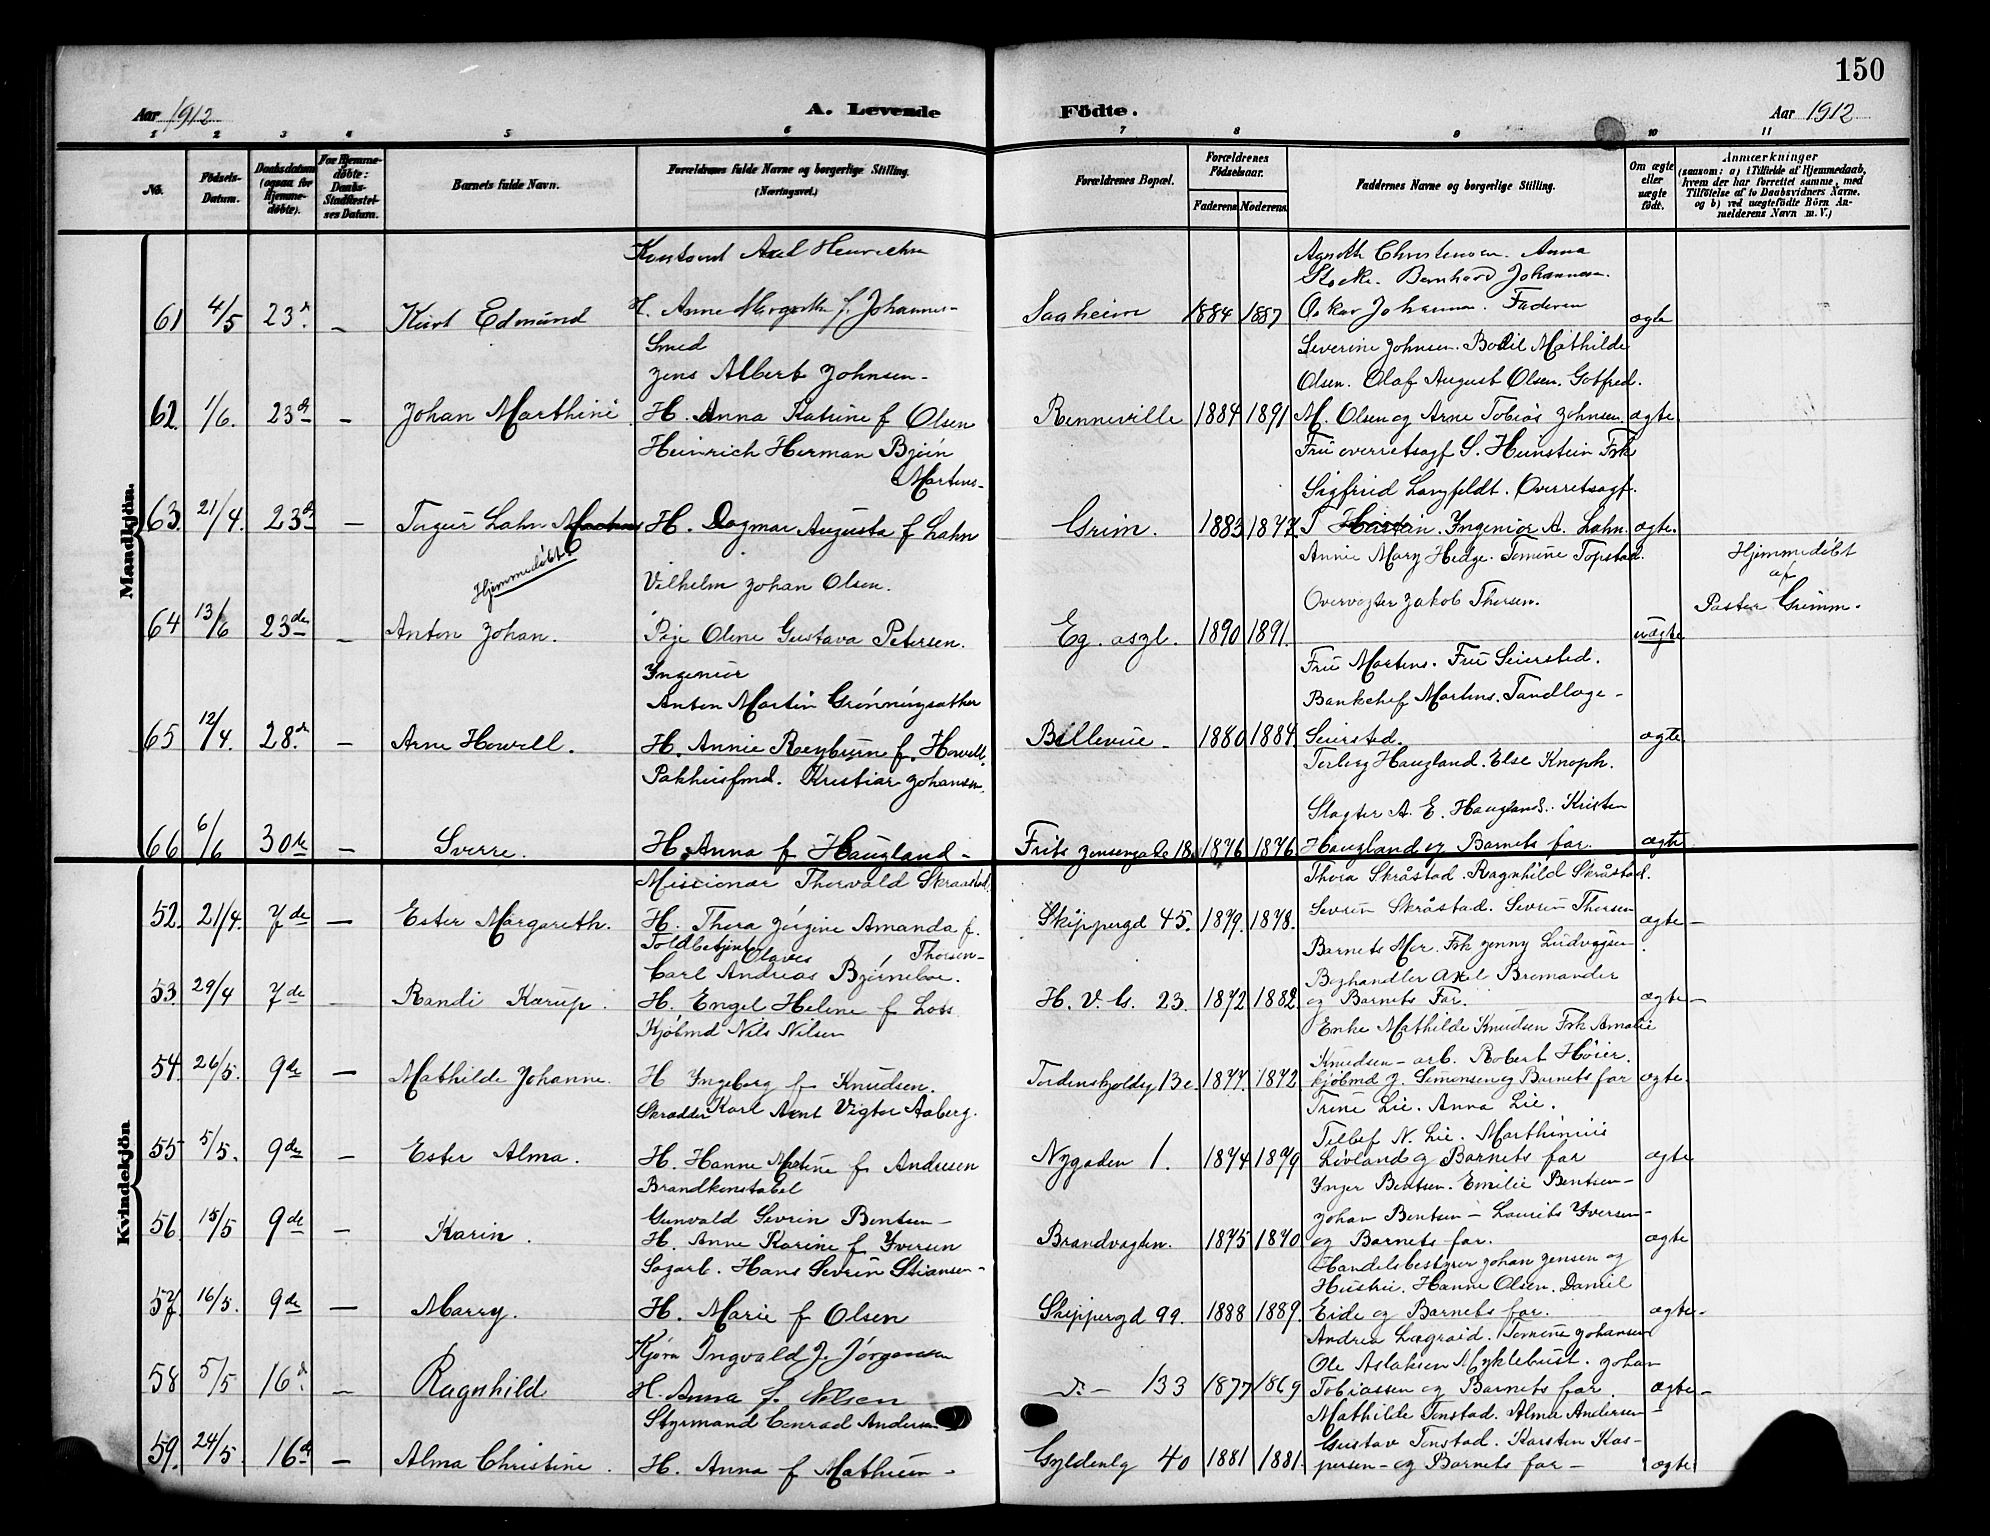 150
Aar 1912
A. Levende
Födte.
Aar 1912
1 2 3 4 5 6 7 8 9 10 11
No.
Födsels-
Datum.
Daabsdatum
(ogsaa for
Hjemme-
döbte).
For Hjemme-
döbte:
Daabs-
Stadfæstel-
ses Datum.
Barnets fulde Navn.
Forældrenes fulde Navne og borgerlige Stilling.
(Næringsvei.)
Forældrenes Bopæl.
Forældrenes
Födselsaar.
Faderens
Moderens
Faddernes Navne og borgerlige Stilling.
Om ægte
eller
uægte
født.
Anmærkninger
(saasom: a) i Tilfælde af Hjemmedaab,
hvem der har forrettet samme, med
Tilföielse af to Daabsvidners Navne.
og b) ved uægtefödte Börn An-
melderens Navn m. V.)
Mandkjön.
Axel Henriksen
61 4/5 23d. – Kurt Edmund
H. Anne Margrethe f. Johannes-
Saaheim 1884 1887
Christensen. Anna
Stocke. Bernhard Johannesen.
Oskar Johannesen. Faderen
ægte
Smed
Jens Albert Johnsen-
62. 1/6. 23d – Johan Marthini
H. Anna Katrine f Olsen
Renneville 1884 1891
Severine Johnsen. Bodil Mathilde
Olsen. Olaf August Olsen. Gotfred.
M. Olsen og Arne Tobias Johnsen.
ægte.
Heinrich Herman Bjørn
Martens-
63. 21/4. 23d – Lahn
H. Dagmar Augusta f Lahn
Grim. 1883 1877.
Fru overretsagf S. Heinstein Frk
Sigfrid Langfeldt. Overretsagf.
Ingeniør A. Lahn.
ægte.
Hjemmedöbt
Vilhelm Johan Olsen.
64 13/6 23de – Anton Johan.
Pige Oline Gustava Petersen.
Eg. aszl. 1890 1891.
Annie Mary Hedge. Tomine Topstad.
Overvogter Jakob Thorsen.
uægte
Hjemmedöbt
af
Pastor Grimm.
Ingeniør
Anton Martin Grønningsæther
65 12/4. 28.de – Arne Howell.
H. Annie f. Howell.
Bellevue – 1880 1884.
Fru Martens. Fru Seiersted.
Bankchef Martens. Tandlæge-
Seiersted.
ægte.
Pakhusfmd. Kristian Johansen.
66 6/6 30te – Sverre.
H. Anna f Haugland –
Frits Jensensgade 18. 1876 1876
Torborg Haugland. Else Knoph.
Slagter A. E. Haugland. Kristen
Haugland og Barnets far.
ægte
Kvindekjön
Missionær Thorvald Skraastad.
52. 21/4. 7de – Ester Margareth.
H. Thora Jørgine Amanda f.
Thorsen-
Skippergd 45. 1879. 1878.
Thora Skråstad. Ragnhild Skråstad.
Sevrin Skråstad. Sevrin Thorsen
ægte –
Toldbetjent Olaves
Carl Andreas Bjørneboe.
53. 29/4 7de – Randi Karup.
H. Engel Helene f Loss
H. V. G. 23. 1872 1882.
Barnets Mor. Frk Jenny Ludvigsen.
Boghandler Axel Bremander
og Barnets Far.
ægte –
Kjøbmd Nils Nilsen
54. 26/5. 9de – Mathilde Johanne.
H Ingeborg f Knudsen.
Tordenskjoldg 13c. 1877. 1872
Enke Mathilde Knudsen Frk Amalie
Knudsen – arb. Robert Høier.
kjøbmd J. Simonsen og Barnets far
ægte.
Skrædder Karl Arnt Vigtor Aaberg.
55 5/5. 9de – Ester Alma.
H. Hanne Martine f Andersen
Nygaden 1. 1874 1879
Trine Lie. Anna Lie.
N. Lie. Marthinius
Livland og Barnets far
ægte
Brandkonstabel
Gunvald Sevrin Bentsen –
56 15/5 9de – Karin.
H. Anne Karine f Iversen
Brandvagten. 1875 1870
Inger Bentsen. Emilie Bentsen –
Johan Bentsen – Laurits Iversen-
og Barnets far.
ægte
Hans Sevrin Stiansen-
57 16/5. 9de – Marry.
H. Marie f Olsen
Skippergd 99. 1888 1889.
Handelsbestyrer Johan Jensen og
Hustru. Hanne Olsen. Daniel
Eide og Barnets far.
ægte.
Ingvald J. Jørgensen
58 5/5 16d. – Ragnhild
H. Anna f. Nilsen
–"– 133 1877 1869
Andrea Lægraid. Tomine Johansen
Ole Aslaksen Myklebust. Johan
Tobiassen og Barnets far.
ægte –
Styrmand Conrad Andersen
59. 24/5. 16de – Alma Christine.
H. Anna f Mathisen –
Gyldenlg 40 1881 1881.
Mathilde Tonstad. Alma Andersen-
Gustav Tonstad. Karsten Kas-
persen – og Barnets far –
ægte